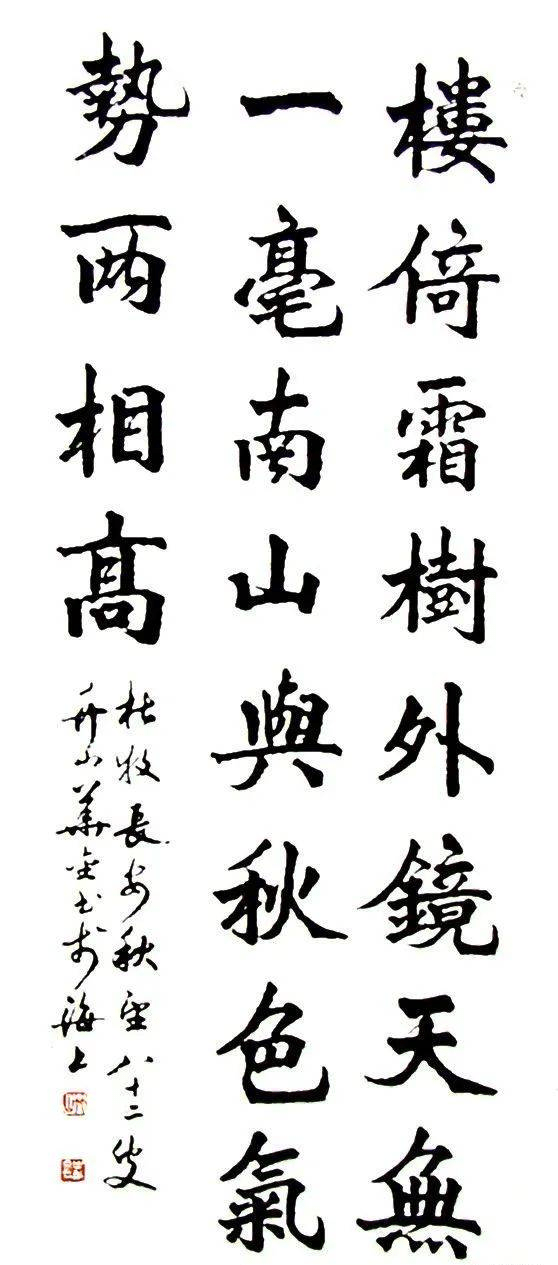 樓倚霜樹外鏡天無
一毫南山與秋色氣
勢兩相高
杜牧長安秋望八十二叟
升山華金书于海上